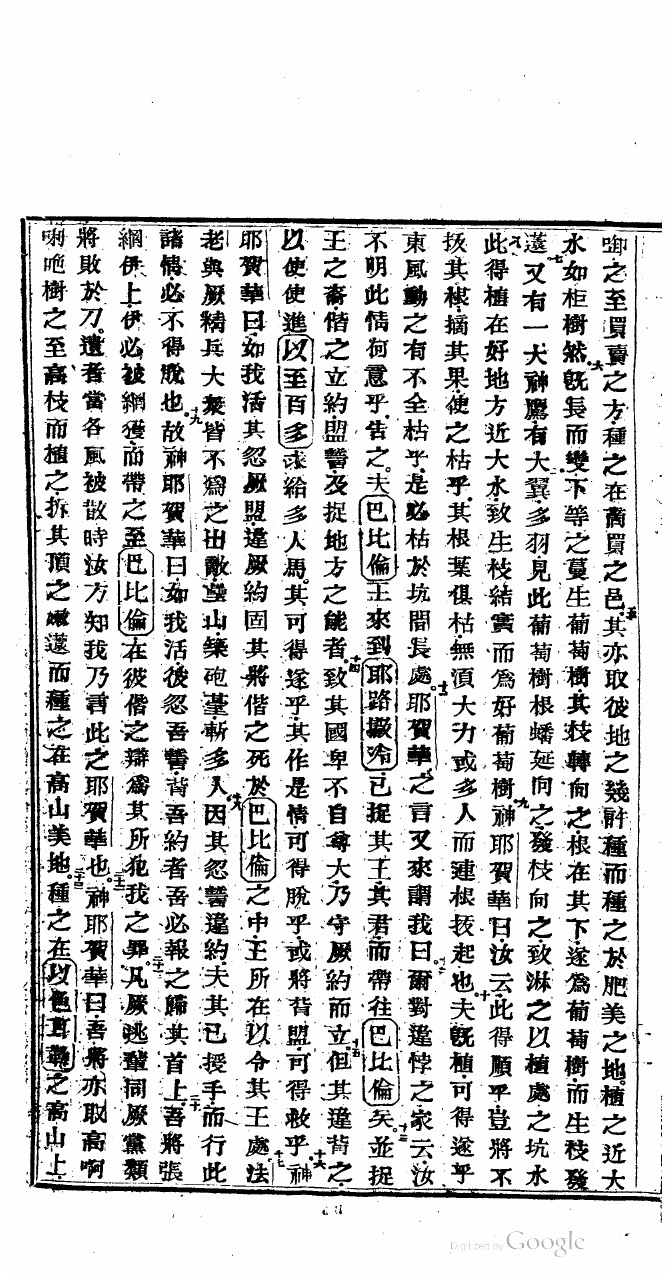 啣之至買賣之方種之在商買之邑其亦取彼地之幾許種而種之於肥美之地植之近大
水如柜樹然旣長而變下等之蔓生葡萄樹其枝轉向之根在其下遂爲葡萄樹而生枝發
又有一大神鷹有大翼多羽見此葡萄樹根蟠延向之發枝向之致淋之以植處之坑水
此得植在好地方近大水致生枝結實而爲好葡萄樹神耶賀華曰汝云此得順乎豈將不
拔其根摘其果使之枯乎其根葉俱枯無須大力或多人而連根拔起也夫旣植可得遂乎
東風動之有不全枯乎是必枯於坑間長處耶賀華之言又來謂我曰爾對違悖之家云汝
不明此情何意乎告之夫巴比倫王來到耶路撒冷已捉其王其君而帶往巴比倫矣並捉
王之裔偕之立約盟誓及捉地方之能者致其國卑不自尊大乃守厥約而立但其違背之
以使使進以至百多求給多人馬其可得遂乎其作是情可得脫乎或將背盟可得救乎神
耶賀華曰如我活其忽厥盟違厥約固其將偕之死於巴比倫之中王所在以令其王處法
老與厥精兵大衆皆不爲之出敵壘山築砲臺斬多人因其忽誓違約夫其已授手而行此
諸情必不得脫也故神耶賀華曰如我活彼忽吾誓背吾約者吾必報之歸其首上吾將張
網伊上伊必被網獲而帶之至巴比倫在彼偕之辯爲其所犯我之罪凡厥逃輩同厥黨類
將敗於刀遺者當各風被散時汝方知我乃言此之耶賀華也神耶賀華曰吾將亦取高啊
唎咃樹之至高枝而植之拆其頂之嫩而種之在高山美地種之在以色耳勒之高山上
五
六
七
八
九
十
十二
十三
十四
十五
十六
十七
十八
十九
二十
二十一
二十二
二十三
Digitized by Google